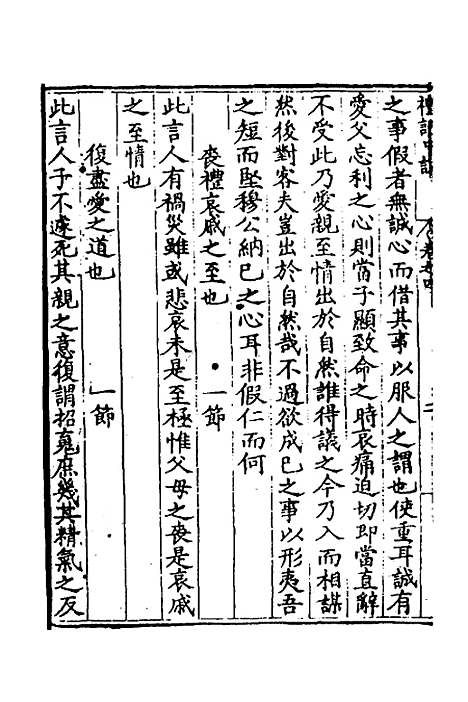 之事假者無誠心而借其事以服人之謂也使重耳誠有
愛父忘利之心則當子顯致命之時哀痛迫切即當直辭
不受此乃愛親至情出於自然誰得議之今乃入而相謀
然後對客夫豈出於自然哉不過欲成巳之事以形夷吾
之短而堅穆公納巳之心耳非假仁而何
喪禮哀戚之至也 一節
此言人有禍災雖或悲哀未是至極惟父母之喪是哀戚
之至情也
復盡愛之道也 一節
此言人子不遽死其親之意復謂招䰟庶幾其精氣之反